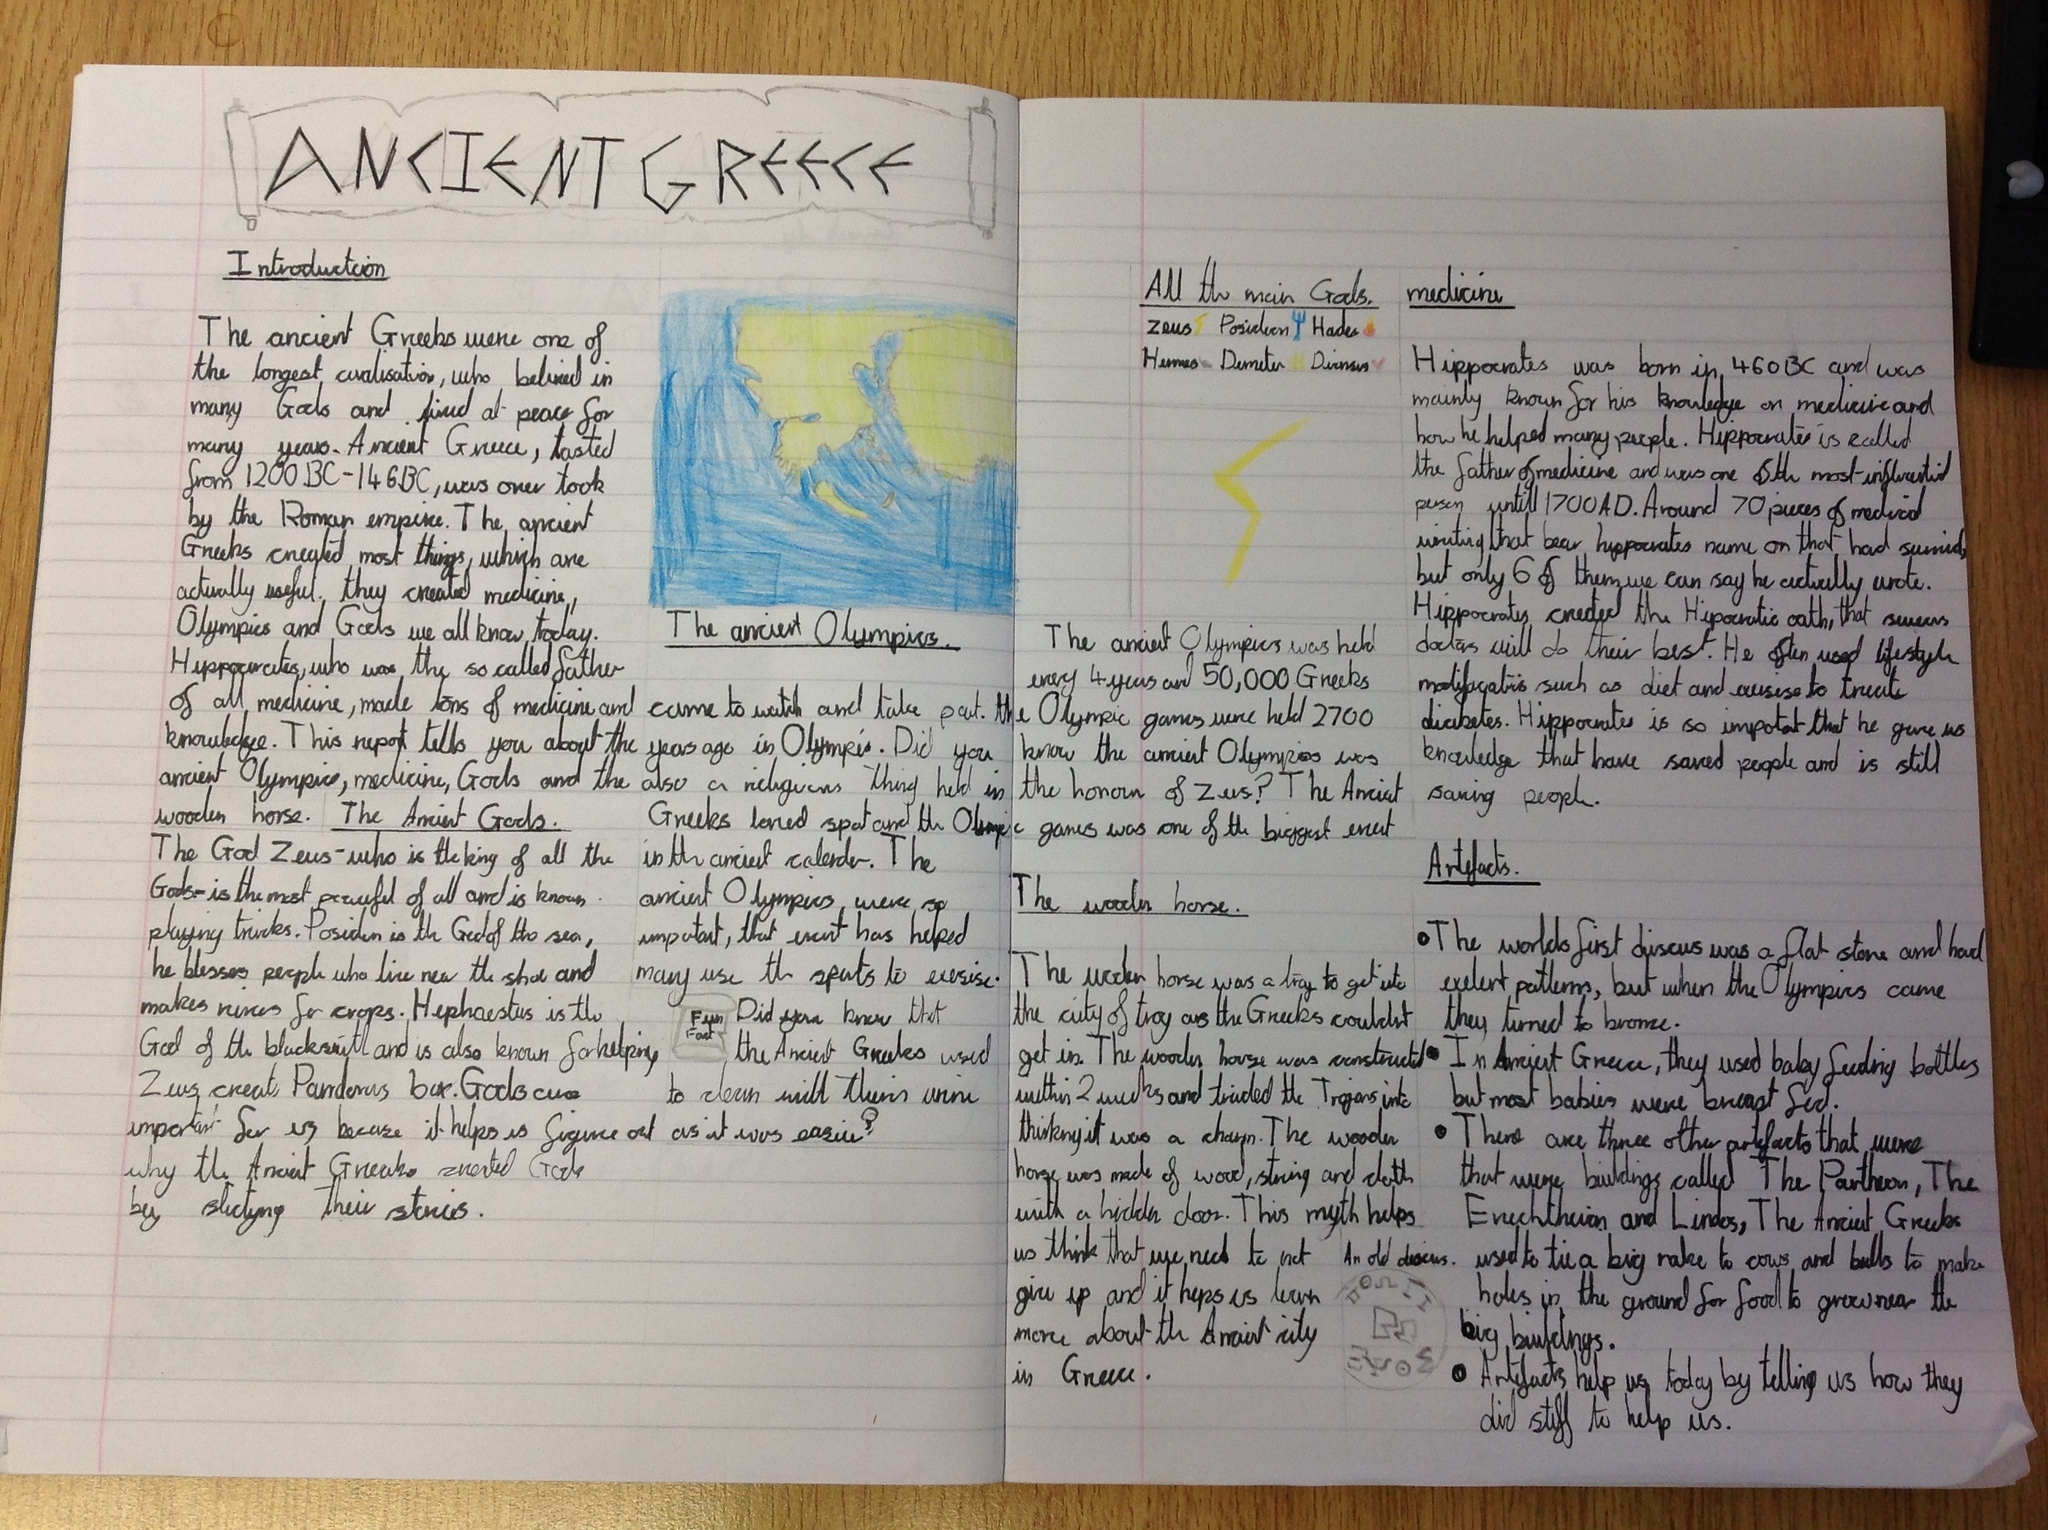 ANCIENT GREECE
Introduction
The ancient Greeks were one of
the longest civalisation, who belived in
many Gods and lived at peace for
many years. Ancient Greece, lasted
from 1200 BC-146BC, was over took
by the Roman empire. The ancient
Greeks created most things, which are
actually useful. they created medicine,
Olympics and Gods we all know, today.
Hippocrates, who was the so called father
of all medicine, made tons of medicine and
knowledge. This report tells you about the
ancient Olympics, medicine, Gods and the
wooden horse.
The Ancient Gods.
The God Zeus-who is the king of all the
Gods- is the most peaceful of all and is known
playing tricks. Posiden is the God of the sea,
he blesses people who live near the shoe and
makes rivers for crops. Hephaestus is the
God of the blacksmith and is also known for helping
Zeus, creat Pandoras box. Gods are
important for us because it helps is figure out
why the Ancient Greeks created Gods
by studying their stories.
The ancient Olympics.
The ancient Olympics was held
every 4 years and 50,000 Greeks
came to watch and take part. the Olympic games were held 2700
years ago in Olympis. Did you know the ancient Olympics was
also a religious thing held in the honour of Zeus? The Ancient
Greeks loved spot and the Olympic games was one of the biggest event
in the ancient calender. The
ancient Olympics were so
impotant, that event has helped
many use the sports to exersise.
Fun
Fact
Did you know that
the Ancient Greeks used
to clean with theirs urine
as it was easier?
All the main Gods.
Zeus Posideon Hades
Hermes Demeter Dionsus
The wooden horse.
The wooden horse was a tray to get into
the city of troy as the Greeks couldnt
get in. The wooden horse was constructed
within 2 weeks and tricked the Trojans into
thinking it was a charm. The wooden
horse was made of wood, string and cloth
with a hidden door. This myth helps
us think that we need to not
give up and it heps us learn
more about the Ancient city
in Greece.
An old discus.
medicine
Hippocrates was born in 460BC and was
mainly known for his knowledge on medicine and
how he helped many people. Hippocrates is called
the father of medicine and was one of the most influential
person untill 1700AD. Around 70 pieces of medical
writing that bear hippocrates name on that had survived,
but only 6 of them we can say he actually wrote.
Hippocrates created the Hipocratic oath, that swears
doctors will do their best. He often used lifestyle
such as diet and exersise to treate
diabetes. Hippocrates is so impotat that he gave us
knowledge that have saved people and is still
saving people.
Artefacts.
• The worlds first discus was a flat stone and had
exelent patterns, but when the Olympics came
they turned to bronze.
• In Ancient Greece, they used baby feeding bottles
but most babies were breast fed.
• There are three other artefacts that were
that were buildings called The Partheon, The
Erechtheion and Lindos, The Ancient Greeks
used to tie a big rake to cows and bulls to make
holes in the ground for food to grow near the
big buildings.
• Artefacts help us today by telling us how they
did stuff to help us.